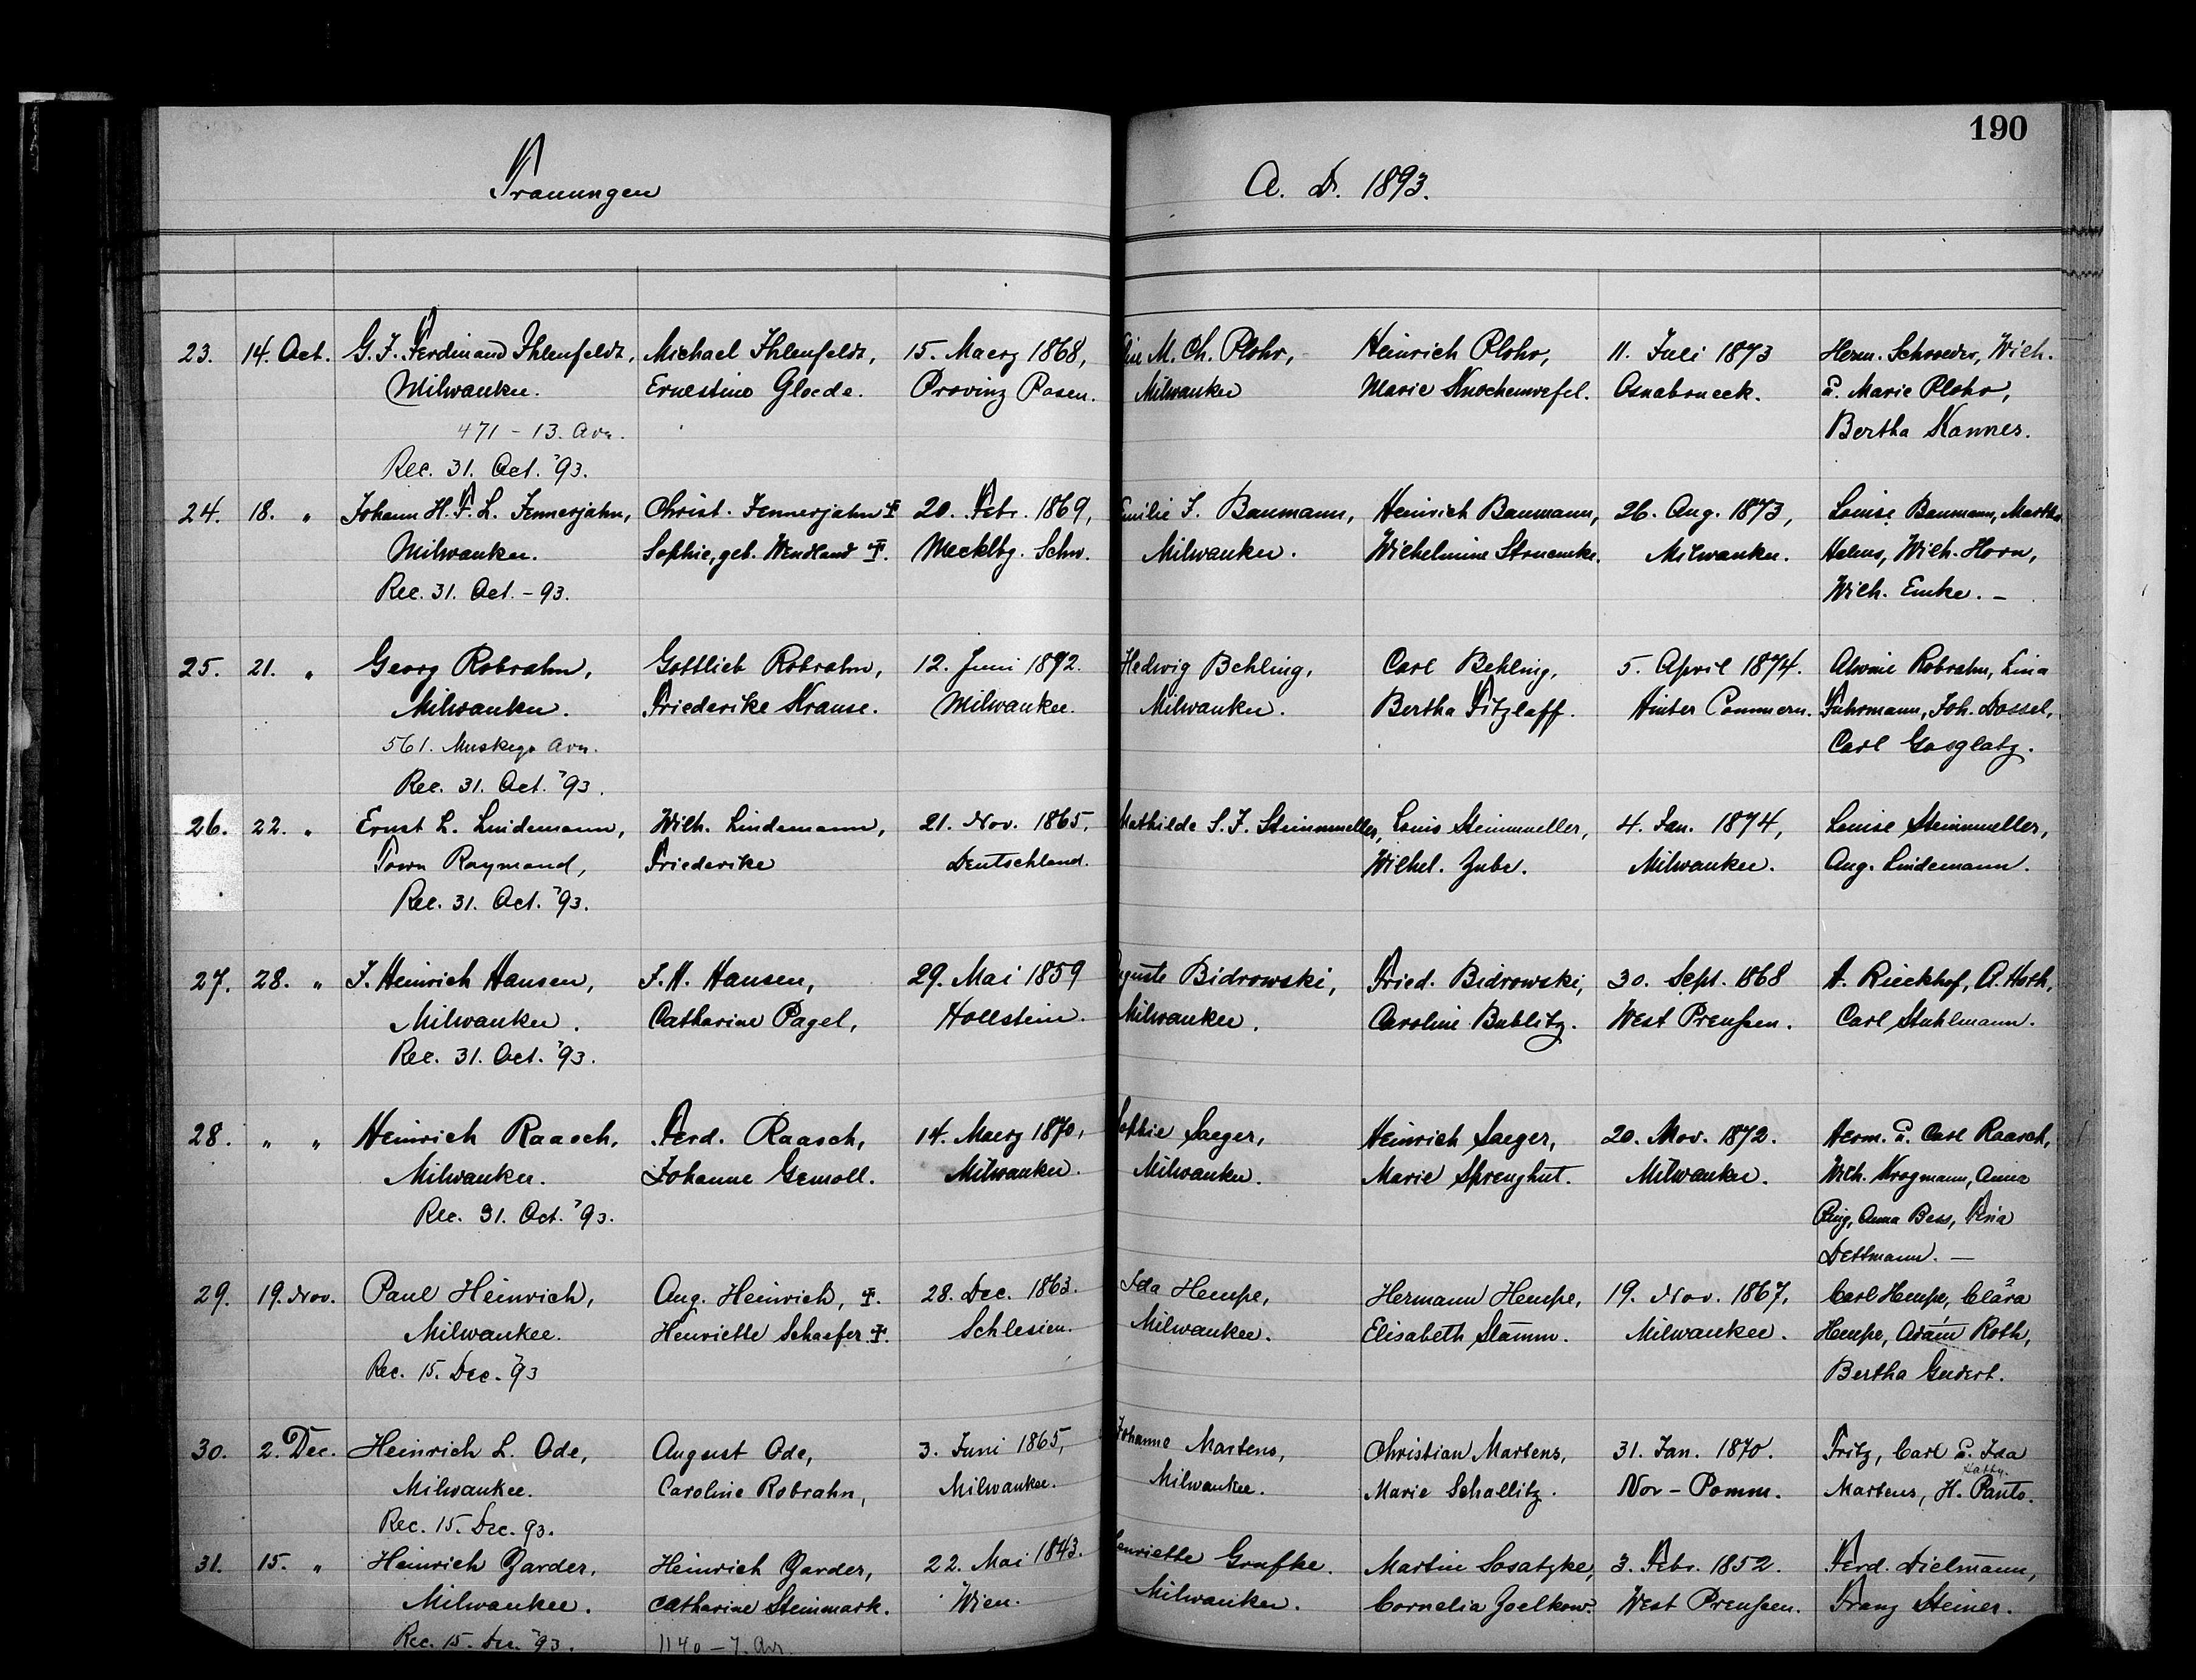 190
Trauungen A. D. 1893.
23. 14. Oct. G. F. Ferdinand Ihlenfeldt, Michael Ihlenfeldt, 15. Maerz 1868, M. Ch. Plohr, Heinrich Plohr, 11. Juli 1873 Herm. Schroeder, Wilh.
Milwaukee. Ernestine Gloede. Provinz Posen. Milwaukee Marie Osnabrueck. u. Marie Plohr,
471 - 13. Ave. Bertha Kannes.
Rec. 31. Oct. '93.
24. 18. " Johann H. F. L. Jennerjahn, Christ. Jennerjahn ✝ 20. Febr. 1869, Emilie F. Baumann, Heinrich Baumann, 26. Aug. 1873, Louise Baumann, Martha
Milwaukee. Sophie, geb. Wendland ✝. Mecklbg. Schw. Milwaukee. Wilhelmine Struemke. Milwaukee. Helms, Wilh. Horn,
Rec. 31. Oct. - 93. Wilh. Emke. —
25. 21. " Georg Robrahn, Gottlieb Robrahn, 12. Juni 1872. Hedwig Behling, Carl Behling, 5. April 1874. Alwine Robrahn, Lina
Milwaukee. Friederike Krause. Milwaukee. Milwaukee. Bertha Fitzlaff. Hinter Pommern. Fuhrmann, Joh. Dossel,
561. Muskego Ave. Carl Gasglatz.
Rec. 31. Oct. '93.
26. 22. " Ernst L. Lindemann, Wilh. Lindemann, 21. Nov. 1865, Mathilde S. F. Steinmueller, Louis Steinmueller, 4. Jan. 1874, Louise Steinmueller,
Town Raymond, Friederike Deutschland. Wilhel. Zube. Milwaukee. Aug. Lindemann.
Rec. 31. Oct. '93.
27. 28. " J. Heinrich Hansen, J. H. Hansen, 29. Mai 1859 Auguste Bidrowski, Fried. Bidrowski, 30. Sept. 1868 H. Rieckhof, A. Horh,
Milwaukee. Catharine Pagel, Hollstein. Milwaukee, Caroline Bublitz. West Preußen. Carl Stuhlmann.
Rec. 31. Oct. '93.
28. " " Heinrich Raasch, Ferd. Raasch, 14. Maerz 1870, Sophie Saeger, Heinrich Saeger, 20. Nov. 1872. Herm. u. Carl Raasch,
Milwaukee. Johanne Gemoll. Milwaukee. Milwaukee. Marie Sprenghut. Milwaukee. Wilh. Krogmann, Anna
Rec. 31. Oct. '93. Ring, Anna Bess,
Dettmann. —
29. 19. Nov. Paul Heinrich, Aug. Heinrich, ✝. 28. Dec. 1863. Ida Hempe, Hermann Hempe, 19. Nov. 1867, Carl Hempe, Clara
Milwaukee. Henriette Schaefer. ✝. Schlesien. Milwaukee. Elisabeth Stamm. Milwaukee. Hempe, Adam Roth,
Rec. 15. Dec. '93 Bertha Gudert.
30. 2. Dec. Heinrich L. Ode, August Ode, 3. Juni 1865, Johanne Martens, Christian Martens, 31. Jan. 1870. Fritz, Carl u. Ida
Milwaukee. Caroline Robrahn, Milwaukee. Milwaukee. Marie Schallitz. Nov - Pomm. Martens, H. Panto.
Rec. 15. Dec. 93.
31. 15. " Heinrich Garder, Heinrich Garder, 22. Mai 1843. Henriette Grafke. Martin Sosatzke, 3. Febr. 1852. Ferd. Dielmann,
Milwaukee. Catharine Steinmark. Wien. Milwaukee. Cornelia Zoelkow. West Preußen. Franz Steiner.
Rec. 15. Dec. '93. 1140 - 7. Ave.